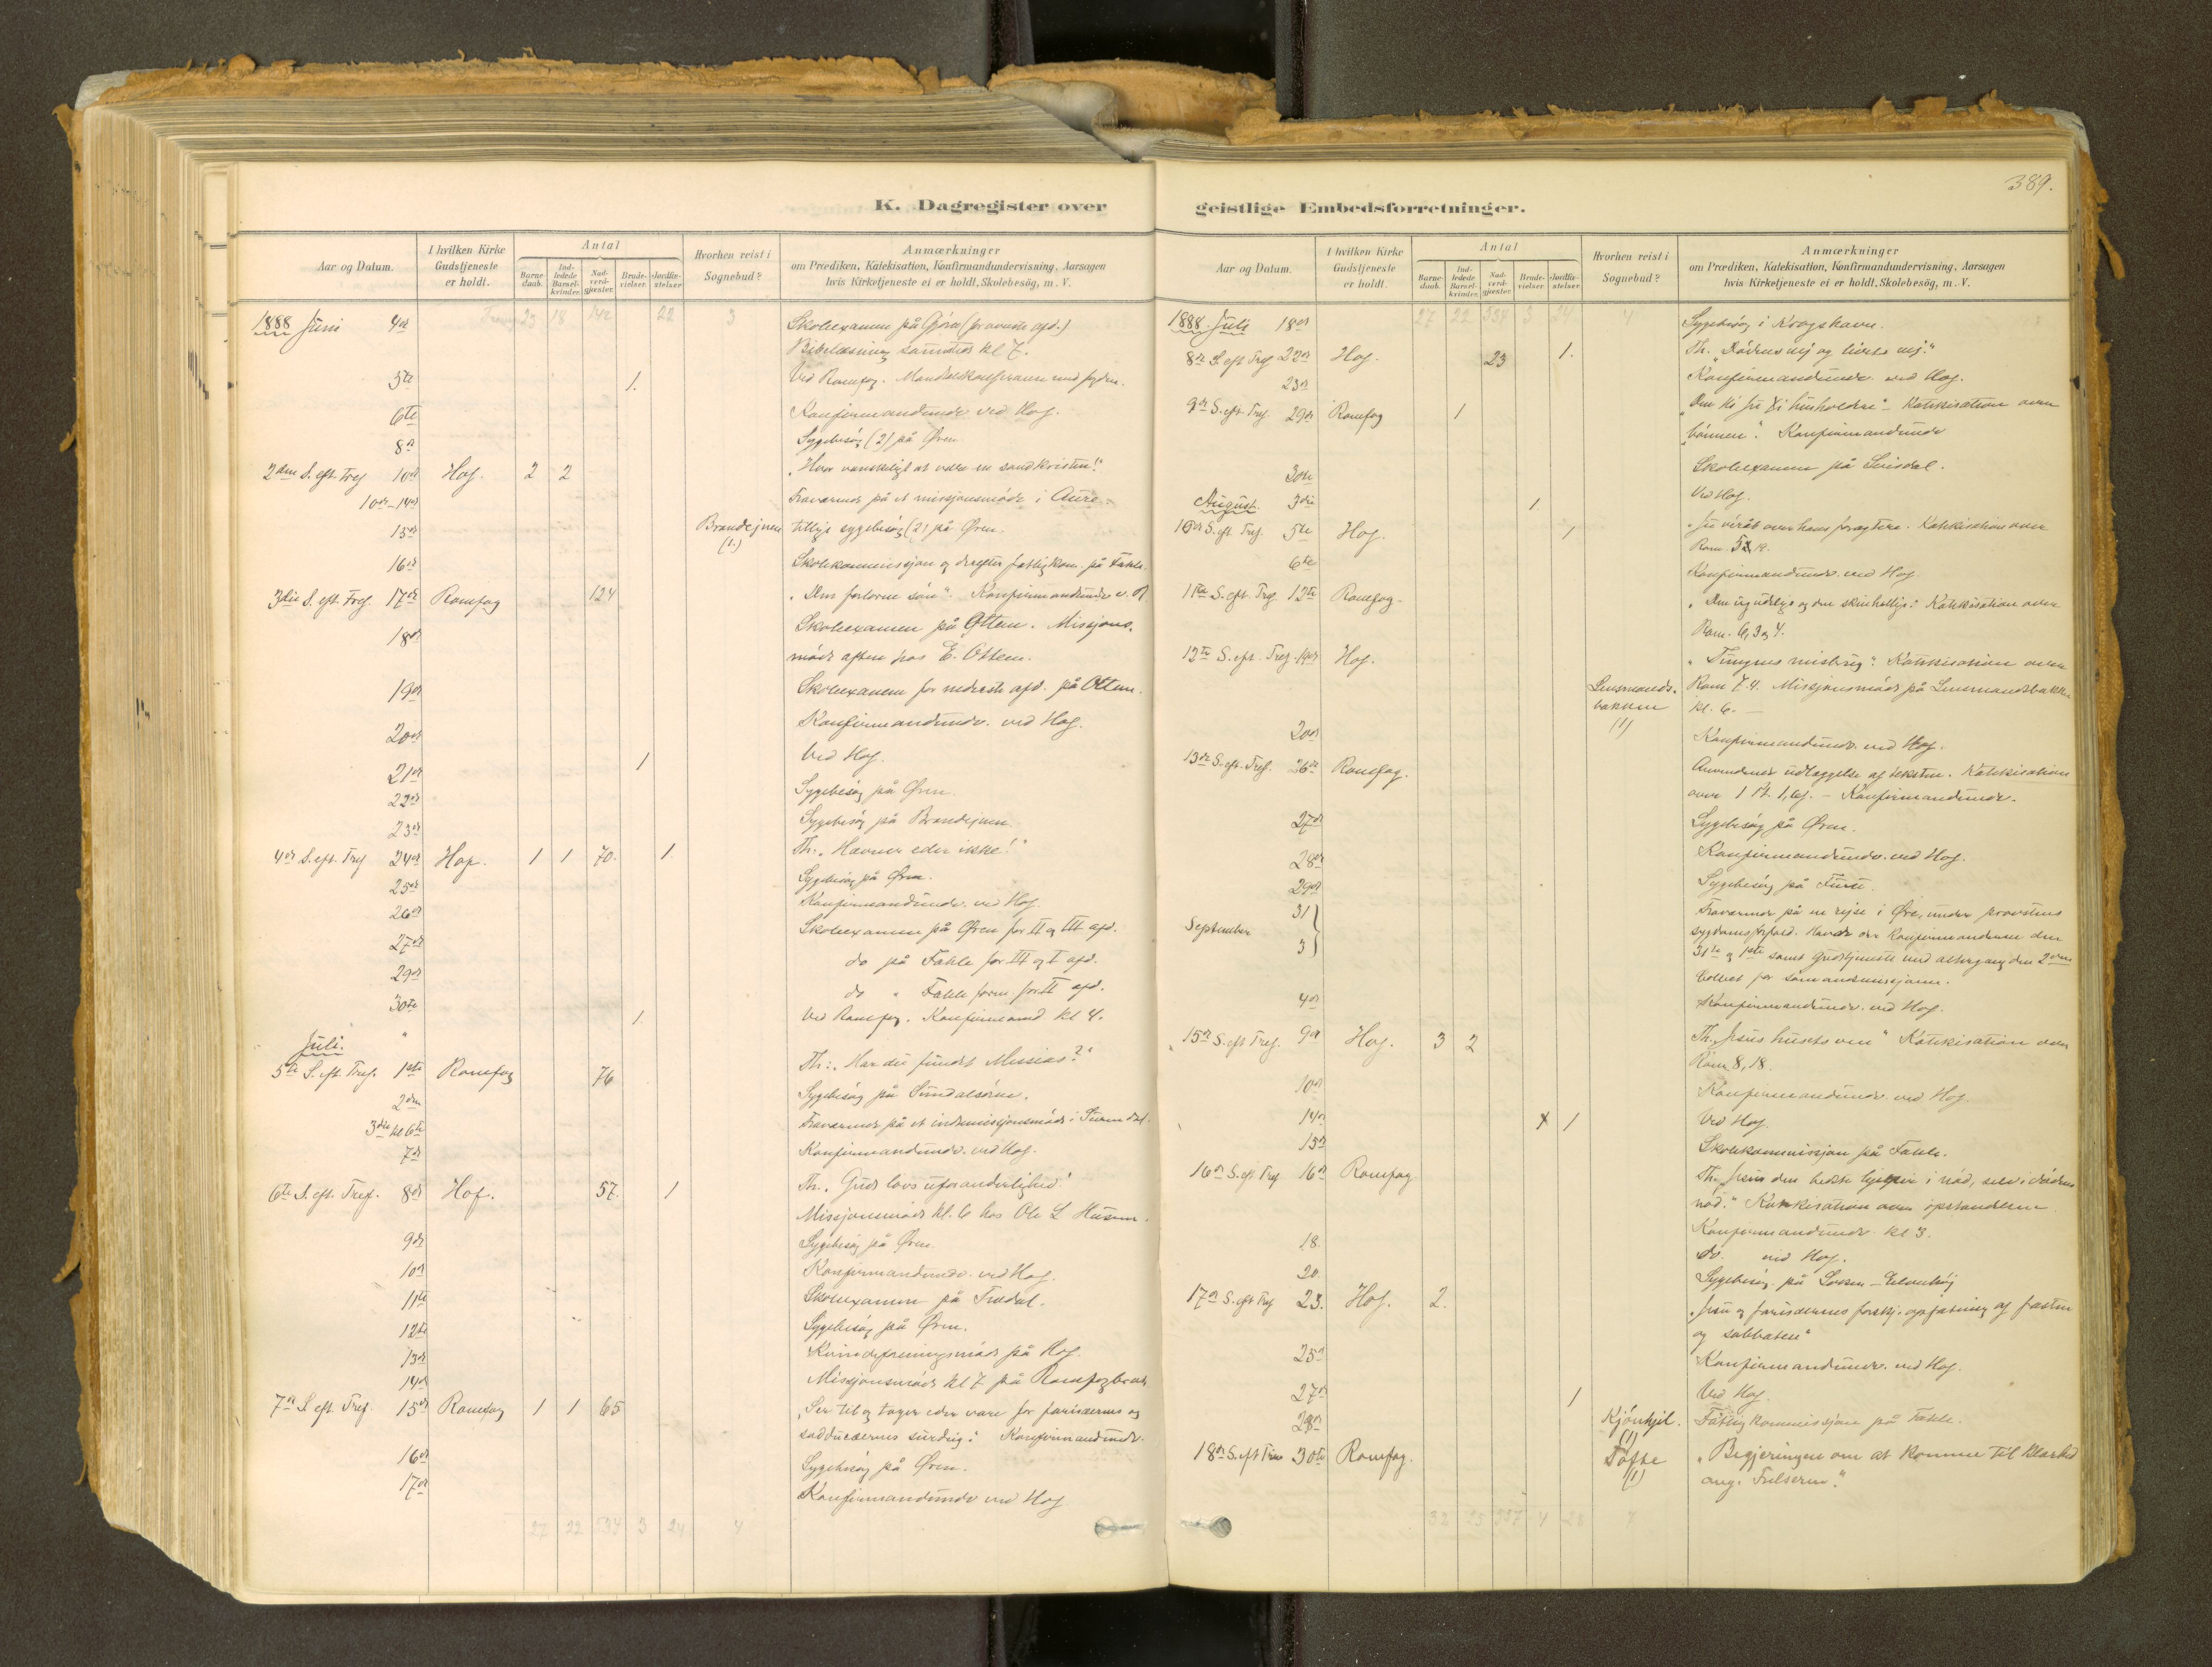 K. Dagregister over
Aar og Datum.
I hvilken Kirke Gudstjeneste er holdt.
Antal
Barnedaab.
Indledede Barselkvinder.
Nadverdgjæster.
Brudevielser.
Jordfæstelser.
Hvorhen reist i Sognebud?
Anmærkninger
om Prædiken, Katekisation, Konfirmandundervisning, Aarsagen
hvis Kirketjeneste ei er holdt, Skolebesög, m. V.
23 18 142 22 3
1888 Juni 4de Skoleexamen på Gjøra (for øverste afd.)
Bibellæsning sammeds kl 7.
5te 1. Ved Romfog.
6te Konfirmandund. ved Hof.
8de Sygebesøg (2) på Øren
2den S. eft Tref 10de Hof. 2 2 "Hvor vanskeligt at være en sand kristen!"
10de-14de Fraværende på et missjonsmøde i Aure
15de Brandejnen (1.) tillige sygebesøg (2) på Øren.
16de Skolekommissjon og derefter fattigkom. på Fahle.
3die S. eft. Tref. 17de Romfog 124 "Den forlorne søn". Konfirmandund. v. R
18de Skoleexamen på Ottem. Missjonsmøde aften hos E. Ottem.
19de Skoleexamen for nederste afd. på Ottem.
20de Konfirmandund. ved Hof.
21de 1 Ved Hof.
22de Sygebesøg på Øren.
23de Sygebesøg på Brandejnen.
4de S. eft. Tref 24de Hof. 1 1 70. 1. Th: "Hævner eder ikke!"
25de Sygebesøg på Øren.
26de Konfirmandund. ved Hof.
27de Skoleexamen på Øren for II og III afd.
29de do på Fahle for III og I afd.
30te do " Fahle for II afd.
" 1. Ved Romfog. Konfirmand. kl 4.
Juli.
5te S. eft. Tref. 1ste Romfog 76 Th: "Har du fundet Messias?"
2den Sygebesøg på Sundalsøren.
3die til 6te Fraværende på et indremissjonsmøde i Surendal.
7de Konfirmandund. ved Hof.
6te S. eft. Tref. 8de Hof. 57. 1 Th. "Guds lovs uforanderlighed."
Missjonsmøde kl. 6 hos Ole L Husum.
9de Sygebesøg på Øren.
10de Konfirmandund. ved Hof.
11te Skoleexamen på Tredal.
12te Sygebesøg på Øren.
13de Kvindeforeningsmøde på Hof.
14de Missjonsmøde kl 7 på
7de S. eft. Tref. 15de Romfog 1 1 65 "Ser til og tager eder vare for farisæernes og
sadducæernes surdeig." Konfirmandund.
16de Sygebesøg på Øren.
17de Konfirmandund. ved Hof
27 22 534 3 24 4
389.
geistlige Embedsforretninger.
Aar og Datum.
I hvilken Kirke Gudstjeneste er holdt.
Antal
Barnedaab.
Indledede Barselkvinder.
Nadverdgjæster.
Brudevielser.
Jordfæstelser.
Hvorhen reist i Sognebud?
Anmærkninger
om Prædiken, Katekisation, Konfirmandundervisning, Aarsagen
hvis Kirketjeneste ei er holdt, Skolebesög, m. V.
27 22 534 3 24 4
1888 Juli 18de Sygebesøg i Krogshavn.
8de S. eft Tref 22de Hof. 23 1. Th. "Dødens vej og livets vej."
23de Konfirmandund. ved Hof.
9de S. eft. Tref. 29de Romfog 1 husholdere" - Katekisation over
"bønnen". Konfirmandund
30te Skoleexamen på
August. 3die 1 Ved Hof.
10de S. eft. Tref. 5te Hof. 1 Katekisation over
Rom. 5, 19.
6te Konfirmandund. ved Hof.
11te S. eft. Tref. 12te Romfog. "Den ugudelige og den skinhellige." Katekisation over
Rom. 6, 3 og 4.
12te S. eft. Tref. 19de Hof. Lensmandsbakken (1) "Tungens misbrug". Katekisation over
Rom 7.4. Missjonsmøde på Lensmandsbakken
kl. 6. -
20de Konfirmandund. ved Hof.
13de S. eft. Tref. 26de Romfog. Anvendende udlæggelse af teksten. Katekisation
over 1 Konfirmandund.
27de Sygebesøg på Øren.
28de Konfirmandund. ved Hof.
29de Sygebesøg på Furu.
September 31 } 3 Fraværende på en rejse i Øre, under provstens
sygdomsforfald. Havde der konfirmanderne den
31te og 1ste samt gudstjeneste med altergang den 2den
for sømandsmissjonen.
4de Konfirmandund. ved Hof.
15de S. eft Tref. 9de Hof. 3 2 Th. "Jesus husets ven" Katekisation over
Rom 8, 18.
10de Konfirmandund. ved Hof
14de 1 Ved Hof.
15de Skolekommissjon på Fahle.
16de S. eft Tref 16de Romfog Th. "Jesus den bedste hjælper i nød, selv i dødens
nød." Katekisation over opstandelsen
Konfirmandund. kl 3.
18. do. ved Hof.
20. Sygebesøg på
17de S. eft Tref 23. Hof. 2. "Jesu og farisæernes forskj. opfatning af fasten
og sabbaten"
25de Konfirmandund. ved Hof.
27de 1 Ved Hof.
28de Kjønhjel. (1) Fattigkommissjon på Fahle.
18de S. eft Tref 30te Romfog. Tofte (1) "Begjeringen om at komme til klarhed
ang. Frelseren".
32 25 557 4 28 7